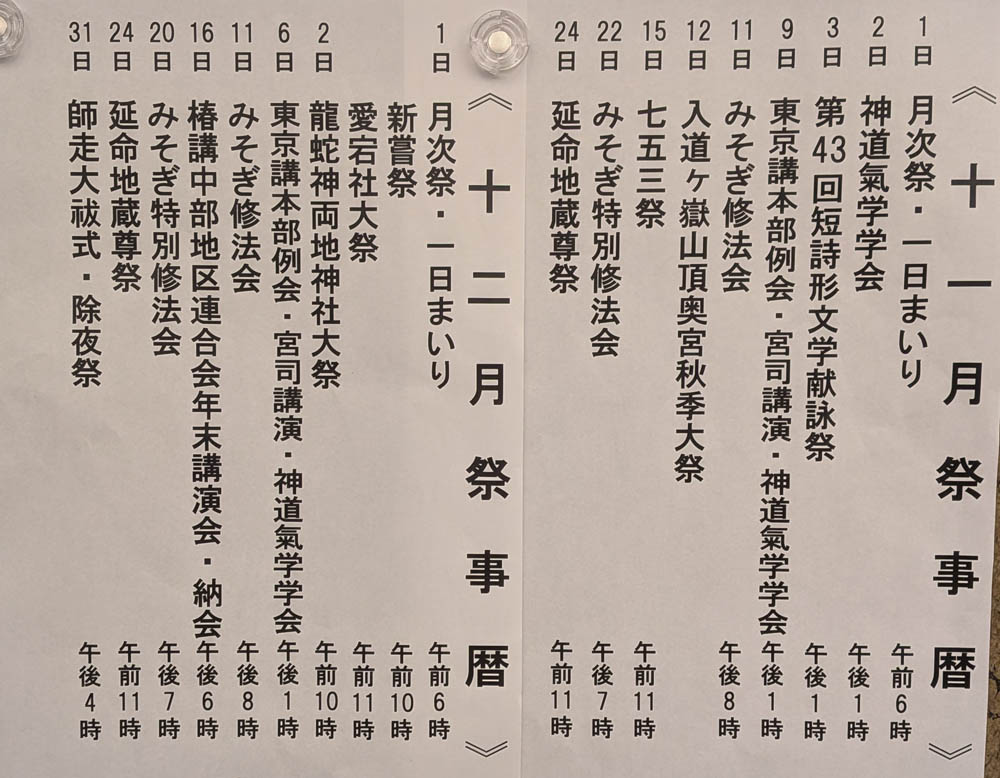 《十一月祭事暦》
1日 月次祭・一日まいり 午前6時
2日 神道氣学学会 午後1時
3日 第43回短詩形文学献詠祭 午後1時
9日 東京講本部例会・宮司講演・神道氣学学会 午後1時
11日 みそぎ修法会 午後8時
12日 入道ヶ嶽山頂奥宮秋季大祭
15日 七五三祭 午前11時
22日 みそぎ特別修法会 午後7時
24日 延命地蔵尊祭 午前11時
《十二月祭事暦》
1日 月次祭・一日まいり 午前6時
新嘗祭 午前10時
愛宕社大祭 午前11時
2日 龍蛇神両地神社大祭 午前10時
6日 東京講本部例会・宮司講演・神道氣学学会 午後1時
11日 みそぎ修法会 午後8時
16日 椿講中部地区連合会年末講演会・納会 午後6時
20日 みそぎ特別修法会 午後7時
24日 延命地蔵尊祭 午前11時
31日 師走大祓式・除夜祭 午後4時